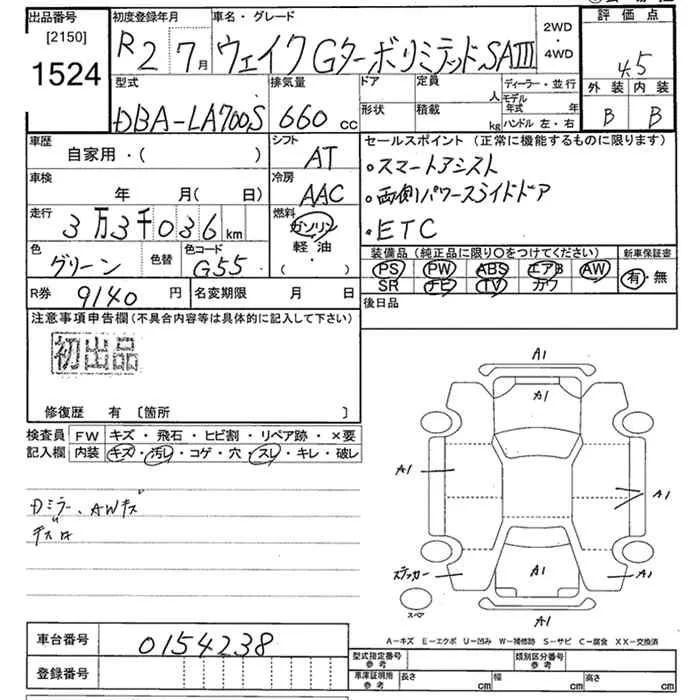 出品番号 初度登録年月 車名・グレード 2WD ・ 4WD 評価点
[2150]
1524 R2 7月 ウェイク Gターボリミテッド SAIII 4.5
型式 排気量 ドア 定員 人 ディーラー・並行 外装 内装
DBA-LA700S 660 cc 形状 積載 kg モデル年式 年 ハンドル 左・右 B B
車歴 シフト セールスポイント (正常に機能するものに限ります)
自家用・( ) AT ・スマートアシスト
車検 冷房 ・両側パワースライドドア
年 月( 日) AAC ・ETC
走行 3万3千036km 燃料 ガソリン 軽油 ・( )
色 グリーン 色替 色コード G55 装備品 (純正品に限り○をつけてください) 新車保証書
PS PW ABS エアB AW 有・無
SR ナビ TV カワ
R券 9140円 名変期限 月 日 後日品
注意事項申告欄 (不具合内容等は具体的に記入して下さい)
初出品
修復歴 有 〔箇所 〕
検査員 FW キズ・飛石・ヒビ割・リペア跡・×要
記入欄 内装 キズ・汚レ・コゲ・穴・スレ・キレ・破レ
Dミラー、AWキズ
キズロ
A1
A1
A1 A1
A1
ステッカー A1
A1
スペア
A-キズ E-エクボ U-凹み W-補修跡 S-サビ C-腐食 XX-交換済
車台番号 0154238
型式指定番号 参考 類別区分番号 参考
登録番号 車庫証明用 参考 長さ cm 幅 cm 高さ cm